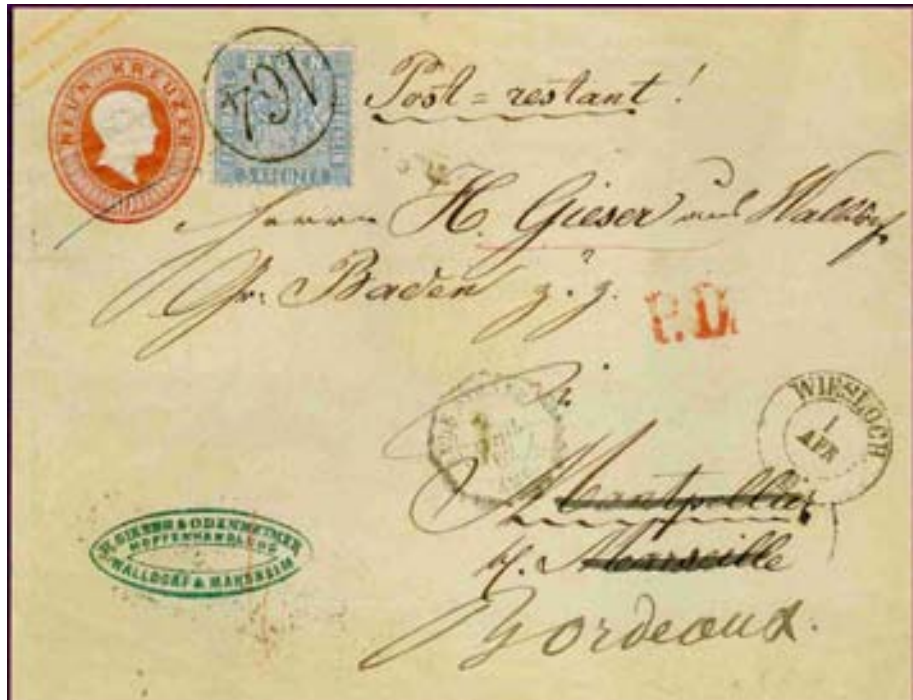 NEUN KREUZER
BADEN
164
KREUZER
Post=restant!
Herrn H. Gieser aus Walldorf
Gr. Baden z. Z.
P.D.
in
WIESLOCH
1
APR
Montpellier
Marseille
Bordeaux.
& ODENHEIMER
HOPFENHANDLUNG
WALLDORF & MANNHEIM